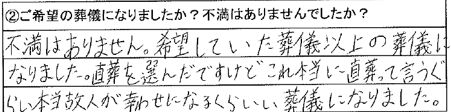 ②ご希望の葬儀になりましたか？不満はありませんでしたか？
不満はありません。希望していた葬儀以上の葬儀に
なりました。直葬を選んだですけどこれ本当に直葬って言うぐ
らい本当故人が幸わせになるくらいいい葬儀になりました。